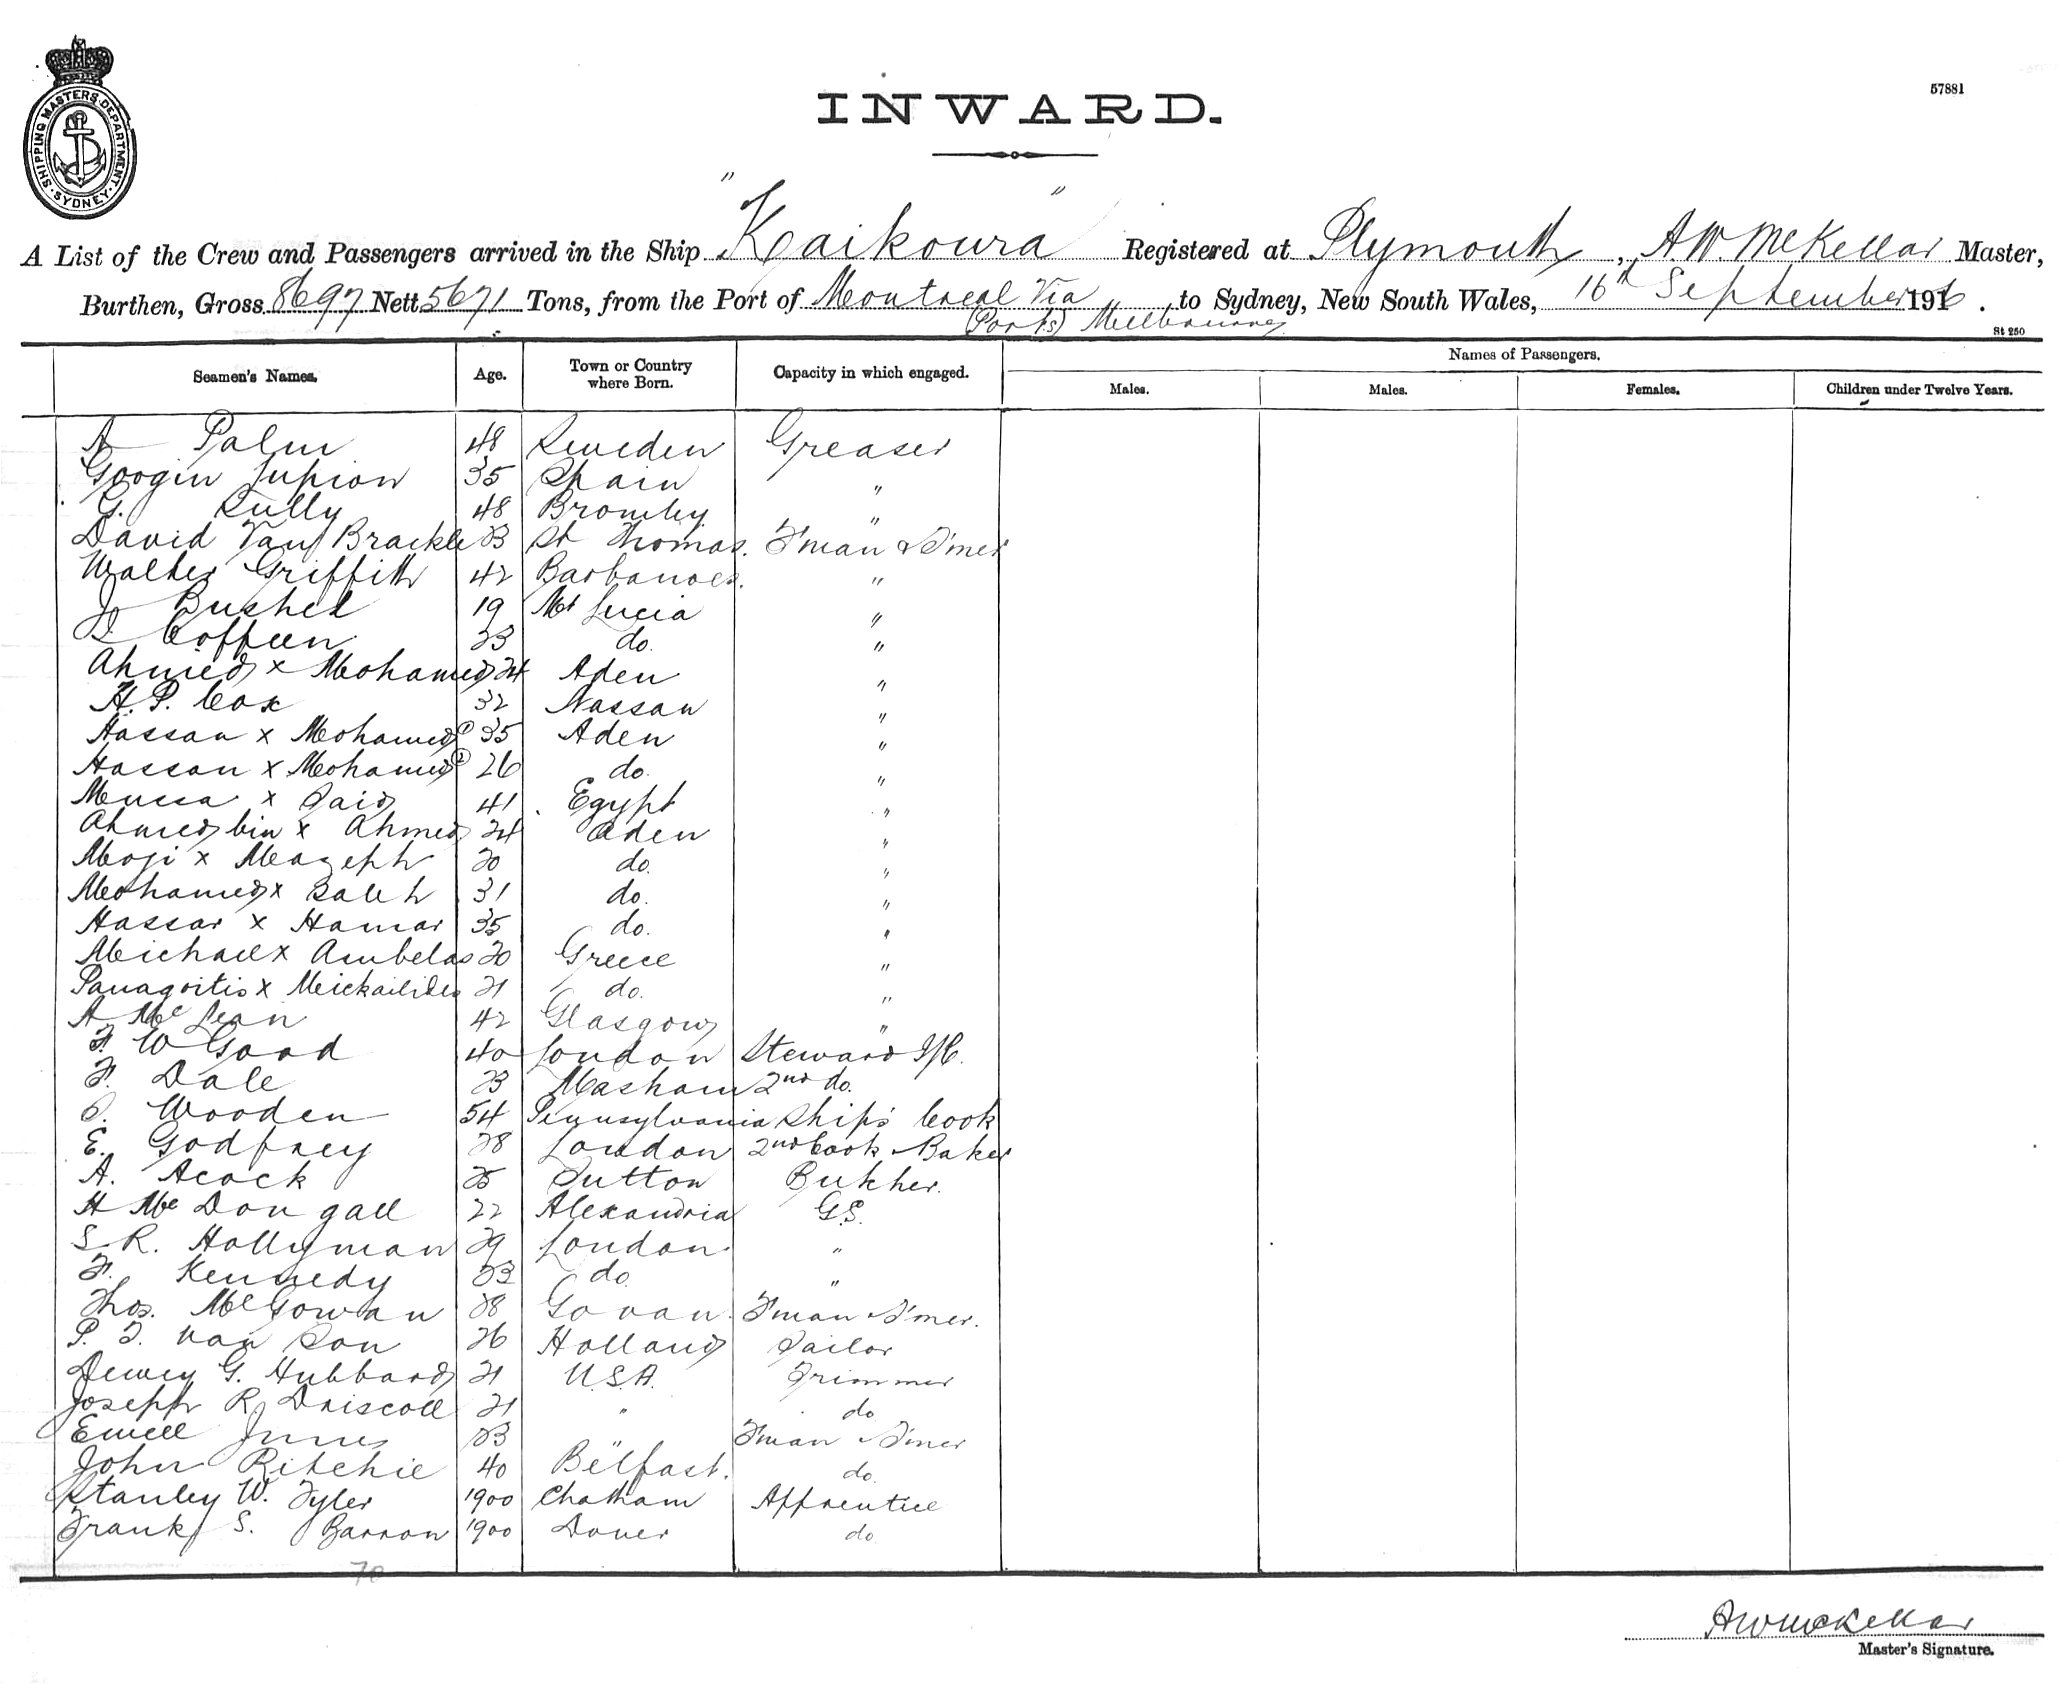 57881
SHIPPING MASTERS DEPARTMENT
SYDNEY
INWARD.
A List of the Crew and Passengers arrived in the Ship "Kaikoura" Registered at Plymouth, A W. McKellar Master,
Burthen, Gross 8697 Nett 5671 Tons, from the Port of Montreal Via to Sydney, New South Wales, 16th September 1916.
(Ports) Melbourne
St 250
Seamen's Names. Age. Town or Country where Born. Capacity in which engaged. Names of Passengers.
Males. Males. Females. Children under Twelve Years.
A Palm 48 Sweden Greaser
Googin 35 Spain "
G. Sully 48 Bromley "
David Van Brackle 23 St Thomas. F'man & T'mer
Walter Griffith 42 Barbanoes. "
J Bushel 19 Mt Lucia "
Coffeen 23 do. "
Ahmed x Mohamed 24 Aden "
H. P. Cox 32 Nassau "
Hassan x Mohamed (1) 35 Aden "
Hassan x Mohamed (2) 26 do. "
Mussa x Said 41 Egypt "
Ahmed bin x Ahmed 24 Aden "
Moji x Mazeph 20 do. "
Mohamed x Saleh 31 do. "
Hassar x Hamar 35 do. "
Michael x Ambelas 20 Greece "
Panagoitis x Mickailides 21 do. "
A McLean 42 Glasgow "
F. W Good 40 London Steward I/C.
F. Dale 23 Masham 2nd do.
Wooden 54 Pennsylvania Ship's Cook
E. Godfrey 28 London 2nd Cook & Baker
A. Acock 25 Sutton Butcher.
H McDongall 22 Alexandria G.S.
S. R. Hollyman 29 London. "
F. Kennedy 23 do. "
Thos. McGowan 28 Govan. F'man & T'mer.
P. J. Van Son 26 Holland Sailor
Dewey G. Hubbard 21 U.S.A. Trimmer
Joseph R. Driscoll 21 " do
Ewell Jones 23 " F'man & T'mer
John Ritchie 40 Belfast. do.
Stanley W. Tyler 1900 Chatham Apprentice
Frank S. Barron 1900 Dover do
70
A W McKellar
Master's Signature.